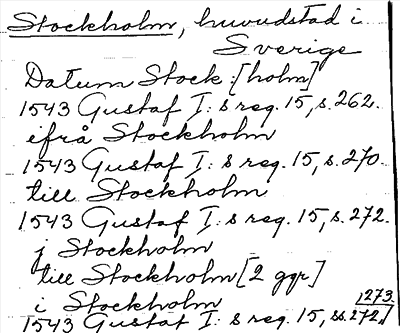 Stockholm, huvudstad i
Sverige
Datum Stock:[holm]
1543 Gustaf I:s reg. 15, s. 262.
ifrå Stockholm
1543 Gustaf I:s reg. 15, s. 270.
till Stockholm
1543 Gustaf I:s reg. 15, s. 272.
j Stockholm
till Stockholm [2 ggr]
i Stockholm
1273
1543 Gustaf I:s reg. 15, ss. 272,